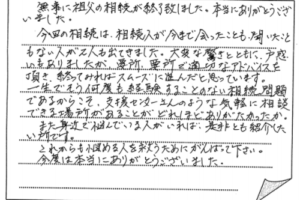 無事に祖父の相続が終了致しました。本当にありがとうござい
ました。
今回の相続は、相続人が今まで会ったことも、聞いたこと
もない人が2人も出てきました。大変な驚きとともに、戸惑
いもありましたが、要所、要所で適切なアドバイスを
頂き、終ってみればスムーズに進んだと思っています。
一生でそう何度も経験することのない相続問題
であるからこそ、支援センターさんのような気軽に相談
できる場所があることがどれほどありがたかったか。
また身近で悩んでいる人がいれば、是非とも紹介したい
所です。
これからも悩める人を救うためにがんばって下さい。
今度は本当にありがとうございました。